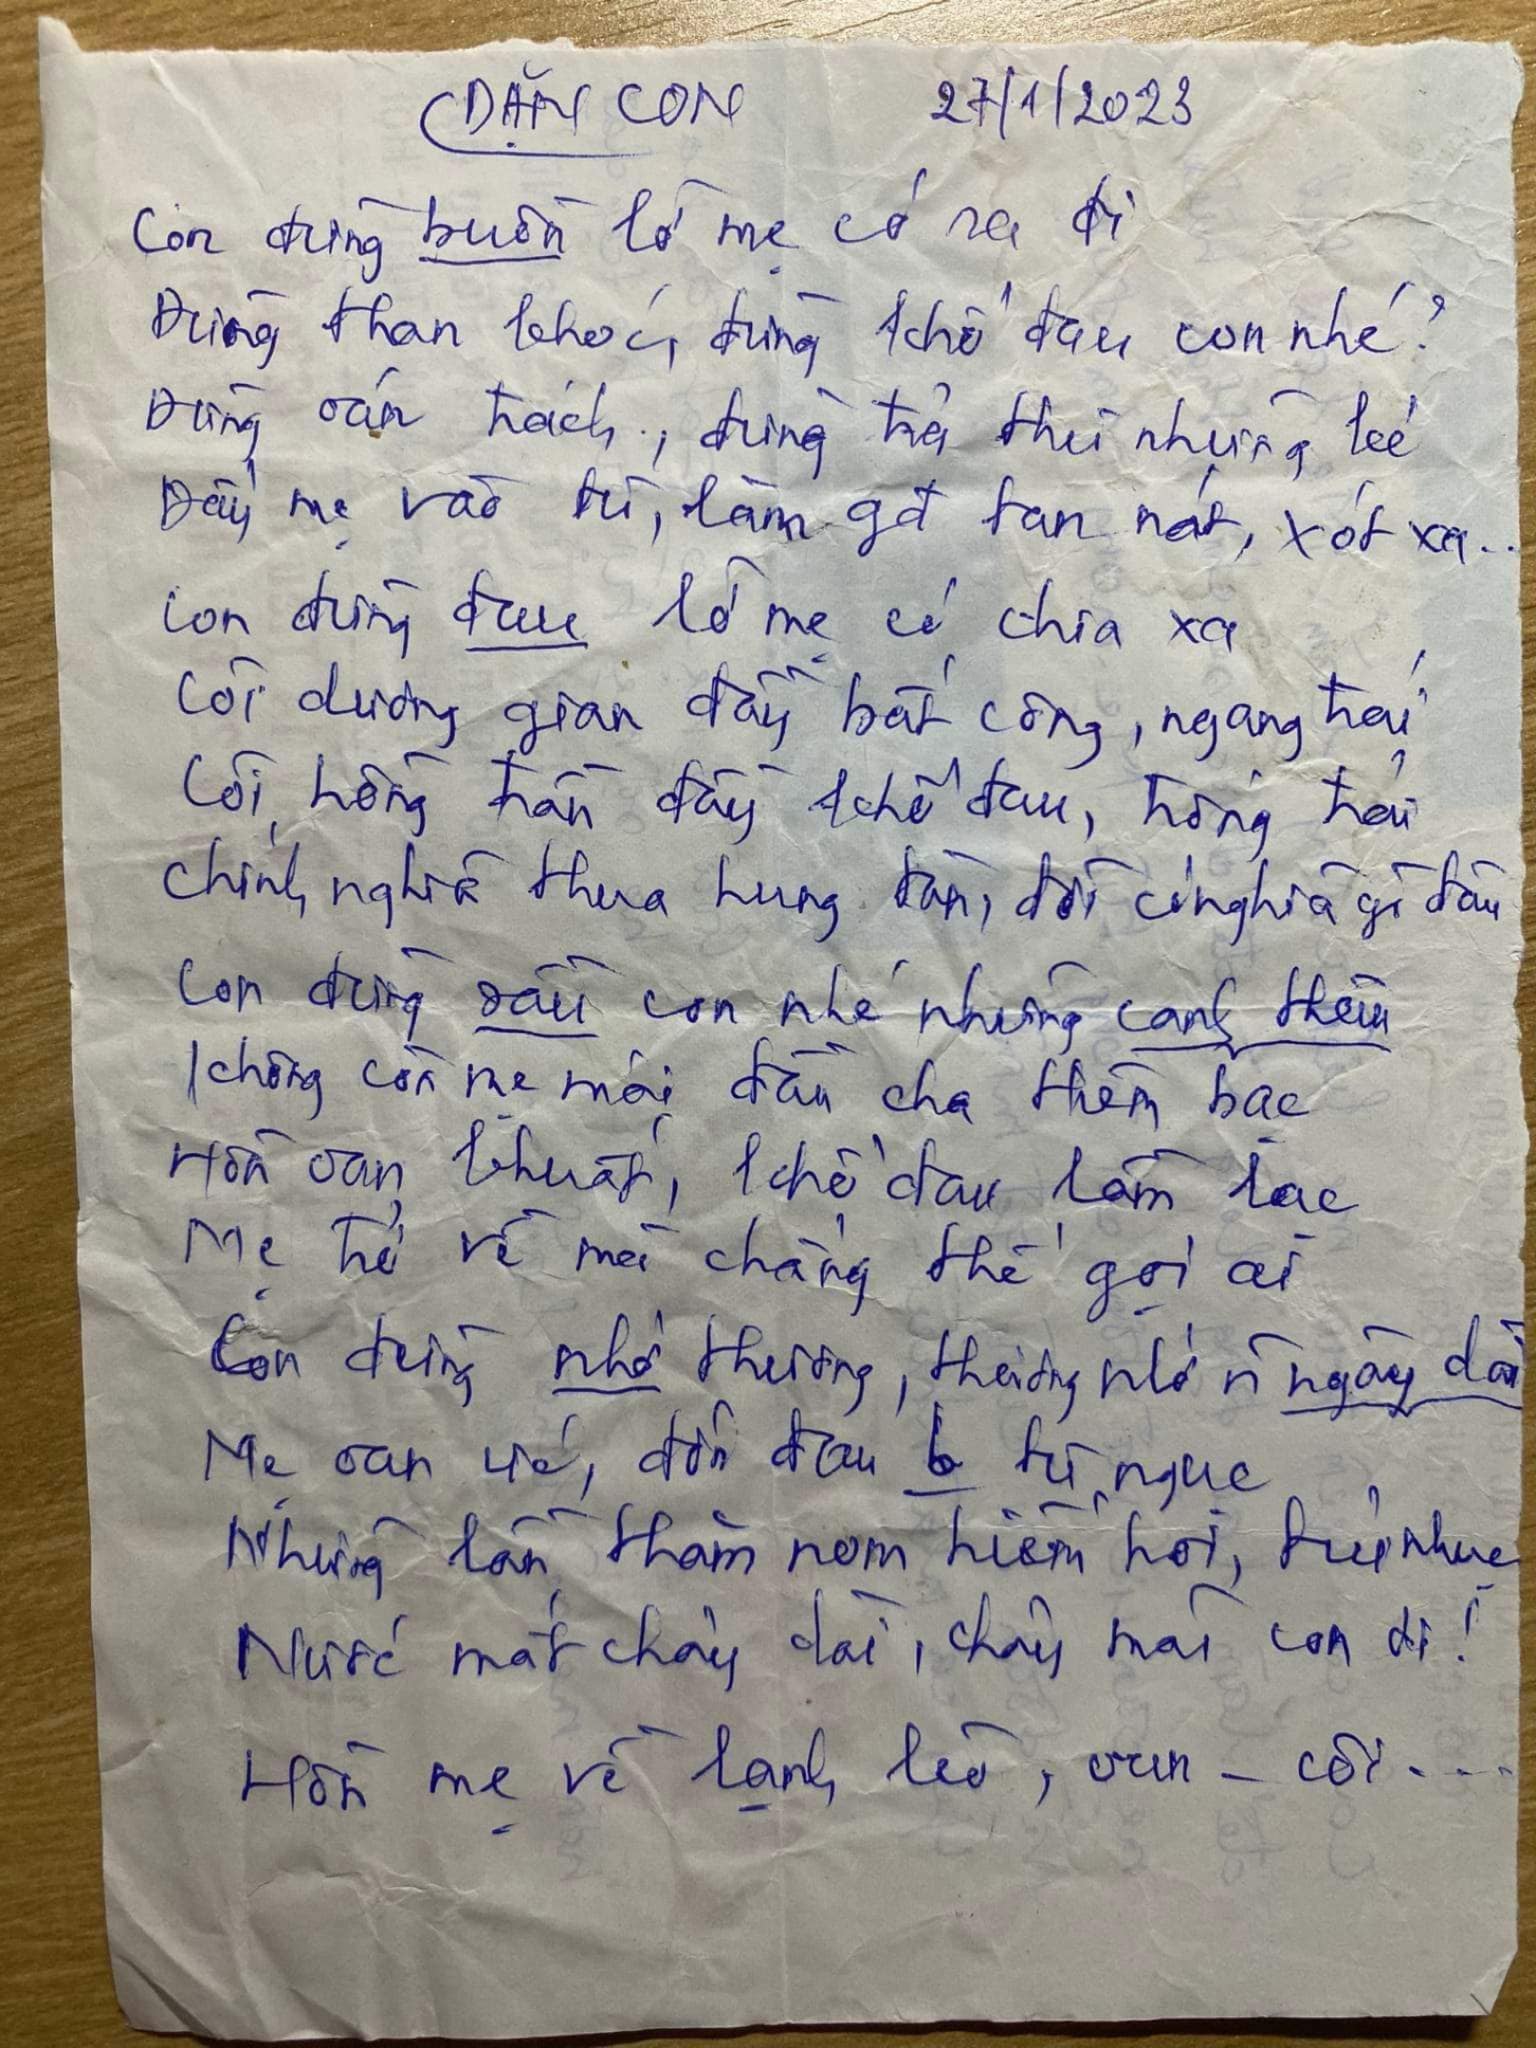 DẶN CON 27/1/2023
Con đừng buồn lỡ mẹ có ra đi
Đừng than khóc, đừng khổ đau con nhé?
Đừng oán trách, đừng trả thù những kẻ
Đẩy mẹ vào tù, làm gđ tan nát, xót xa...
Con đừng đau lỡ mẹ có chia xa
Cõi dương gian đầy bất công, ngang trái
Cõi hồng trần đầy khổ đau, trông trái
Chính nghĩa thua hung tàn, đời có nghĩa gì đâu
Con đừng sầu con nhé những canh thâu
Không còn mẹ mái đầu cha thêm bạc
Hồn oan khuất, khổ đau lầm lạc
Mẹ trở về mà chẳng thể gọi ai
Con đừng nhớ thương, thương nhớ n ngày dài
Mẹ oan ức, đớn đau b tù ngục
Những lần thăm nom hiếm hoi, tủi nhục
Nước mắt chảy dài, chảy mãi con ơi!
Hồn mẹ về lạnh lẽo, oan - côi....